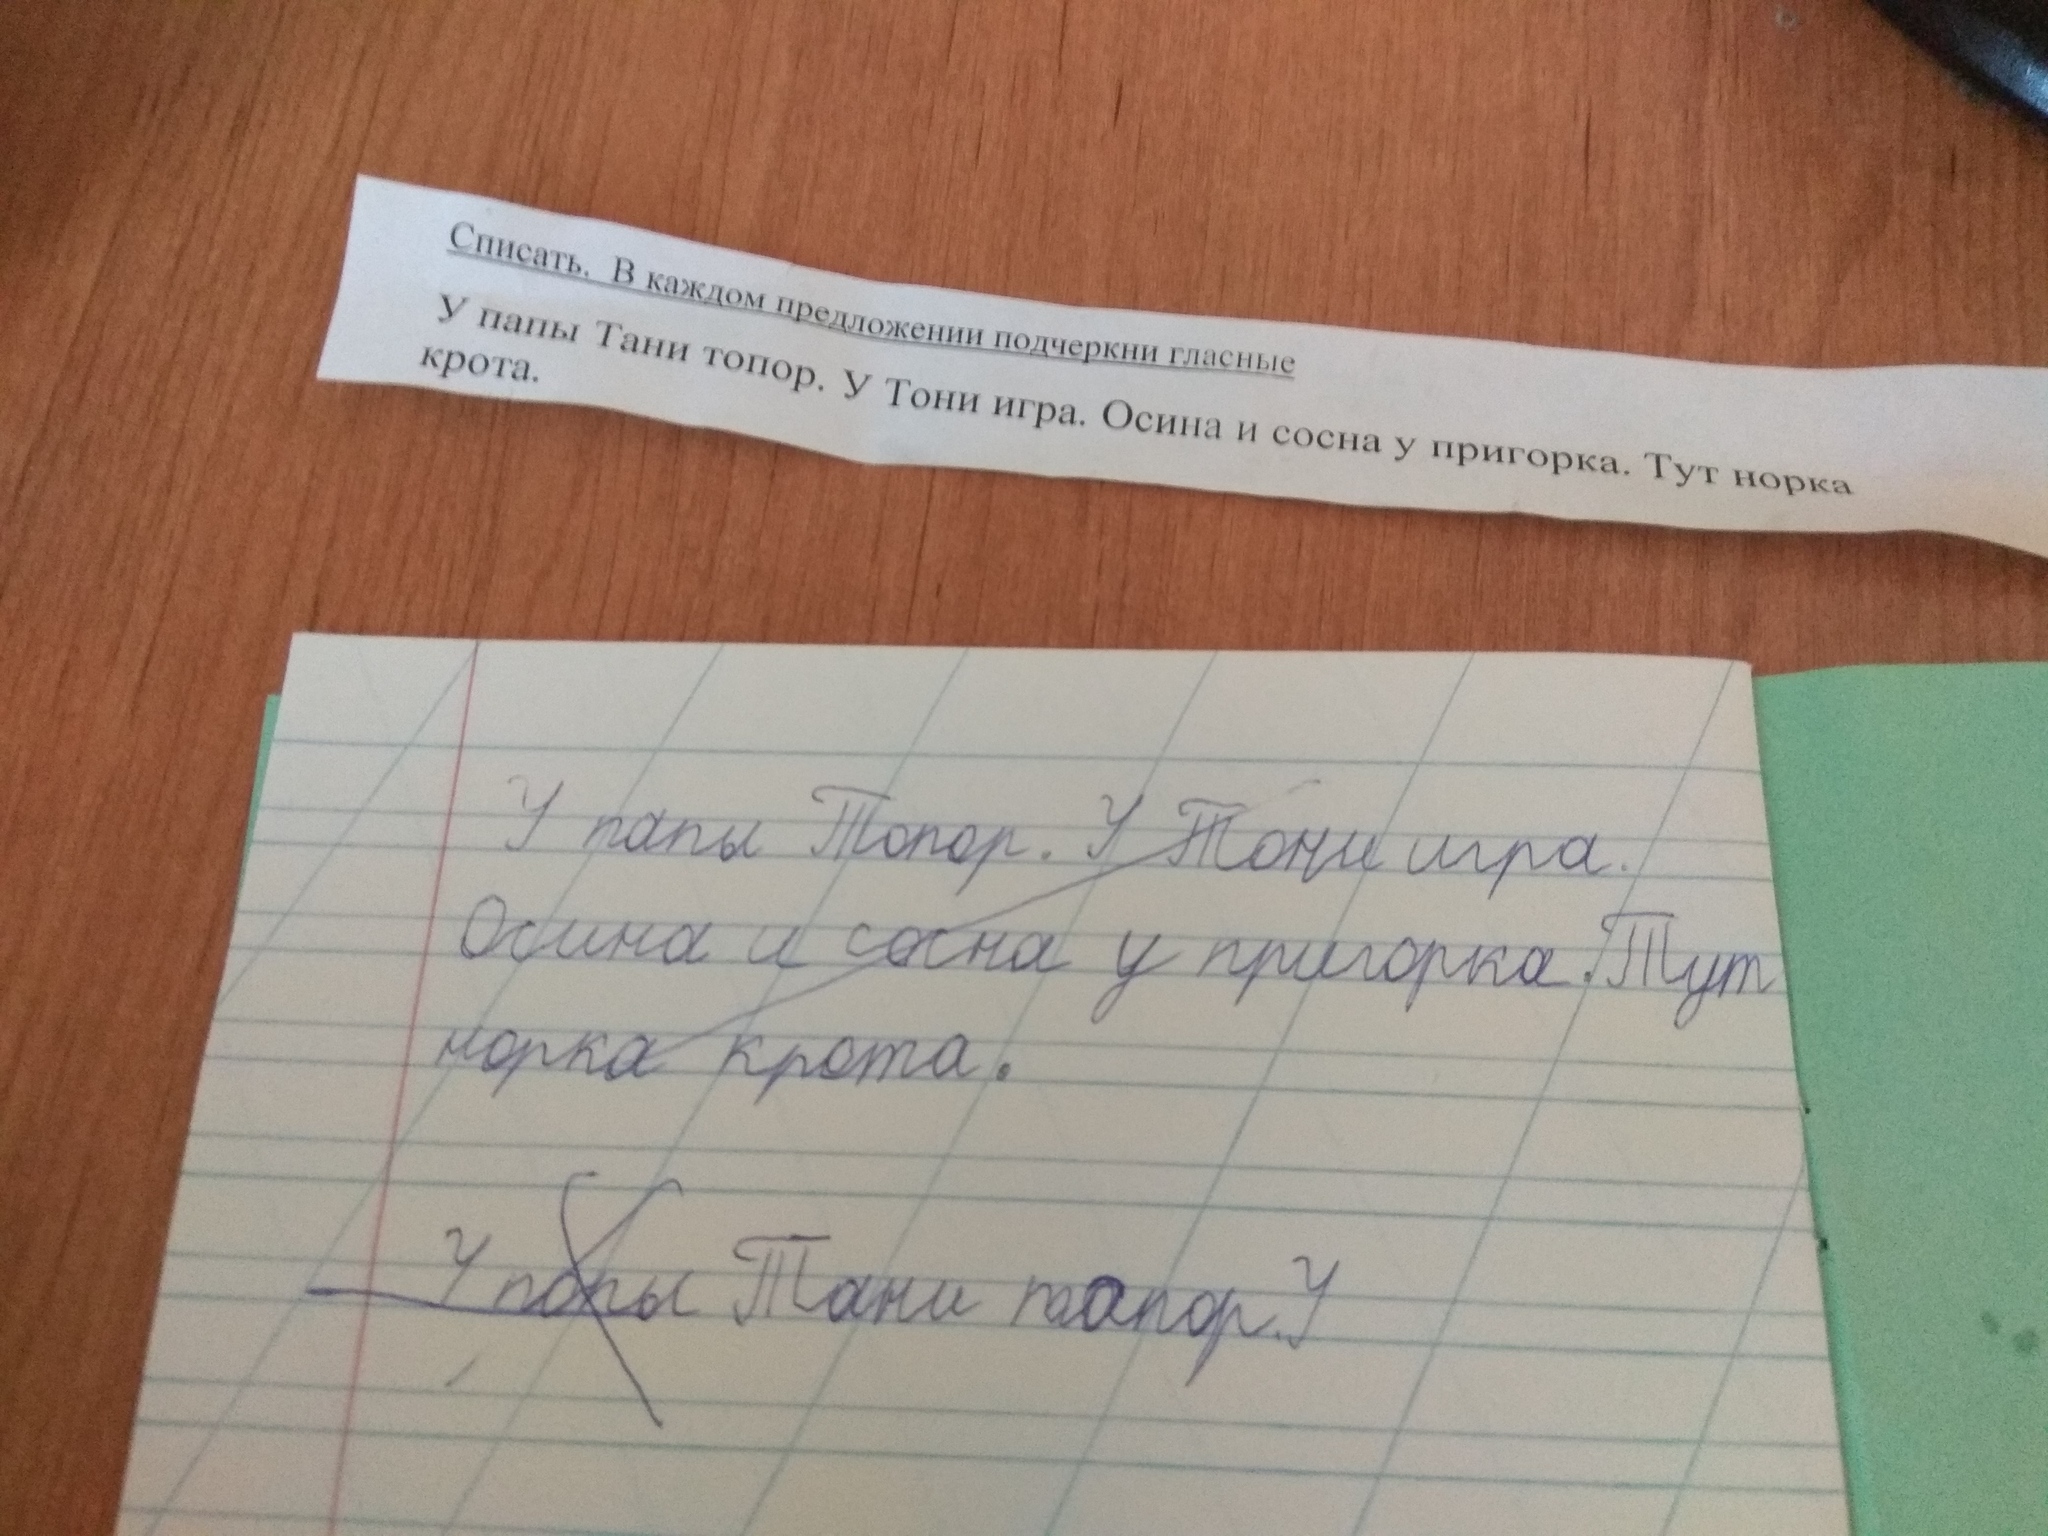 Списать. В каждом предложении подчеркни гласные
У папы Тани топор. У Тони игра. Осина и сосна у пригорка. Тут норка
крота.
У папы Топор. У Тони игра.
Осина и сосна у пригорка. Тут
норка крота.
У попы Тани таопор. У